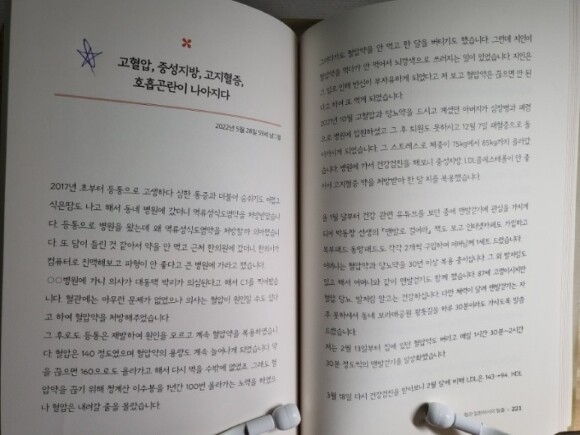 고혈압, 중성지방, 고지혈증,
호흡곤란이 나아지다
2022년 5월 28일 55세 남
2017년 초부터 등통으로 고생하다 심한 통증과 더불어 숨쉬기도 어렵고
식은땀도 나고 해서 동네 병원에 갔더니 역류성식도염약을 처방받았습니
다. 등통으로 병원을 왔는데 왜 역류성식도염약을 처방할까 의아했습니
다. 또 담이 들린 것 같아서 약을 안 먹고 근처 한의원에 갔더니, 한의사가
컴퓨터로 진맥해보고 파형이 안 좋다고 큰 병원에 가라고 했습니다.
○○병원에 가니 의사가 대동맥 박리가 의심된다고 해서 CT를 찍어봤습
니다. 혈관에는 아무런 문제가 없었으나 의사는 혈압이 원인일 수도 있다
고 하여 혈압약을 처방해주었습니다.
그 후로도 등통은 재발하여 원인을 모르고 계속 혈압약을 복용하였습니
다. 혈압은 140 정도였으며 혈압약의 용량도 계속 늘어나게 되었습니다. 약
을 끊으면 160으로도 올라가고 해서 다시 먹을 수밖에 없었죠. 그래도 혈
압약을 끊기 위해 청계산 이수봉을 1년간 100번 올라가는 노력을 하였으
나 혈압은 내려갈 줄을 몰랐습니다.
그러다가도 혈압약을 안 먹고 한 달을 버티기도 했습니다. 그런데 지인이
혈압약을 먹다가 안 먹어서 뇌경색으로 쓰러지는 일이 있었습니다. 지인은
그 일로 인해 반신이 부자유하게 되었다고 저 보고 혈압약은 끊으면 안 된
다고 하여 또 먹게 되었습니다.
2021년 10월 고혈압과 당뇨약을 드시고 계셨던 아버지가 심장병과 폐렴
으로 병원에 입원하셨고 그 후 퇴원도 못하시고 12월 7일 패혈증으로 돌
아가시게 되었습니다. 그 스트레스로 체중이 75kg에서 85kg까지 올라갔
습니다. 병원에 가서 건강검진을 해보니 중성지방, LDL콜레스테롤이 안 좋
아서 고지혈증 약을 처방받아 한 달 치를 복용했습니다.
올 1월 달부터 건강 관련 유튜브를 보던 중에 맨발걷기에 관심을 가지게
되어 박동창 선생의 『맨발로 걸어라』 책도 보고 인터넷카페도 가입하고
어머니는 혈압약과 당뇨약을 30년 이상 복용 중이십니다. 그 외 발저림도
있고 해서 어머니와 같이 맨발걷기도 함께 했습니다.
드렸습니다.
저는 2월 13일부터 집에 있던 혈압약도 버리고 매일 1시간 30분~2시간
30분 정도씩의 맨발걷기를 일상화했습니다.
3월 18일 다시 건강검진을 받아보니 2월 달에 비해 LDL은 143→94, HDL
223